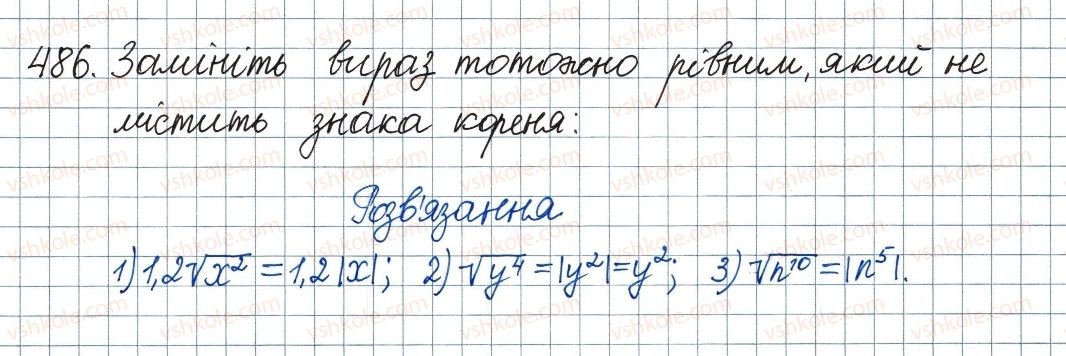 486. Замініть вираз тотожно рівним, який не
містить знака кореня:
Розв'язання
1) 1,2√x² = 1,2|x|; 2) √y⁴ = |y²| = y²; 3) √n¹⁰ = |n⁵|.